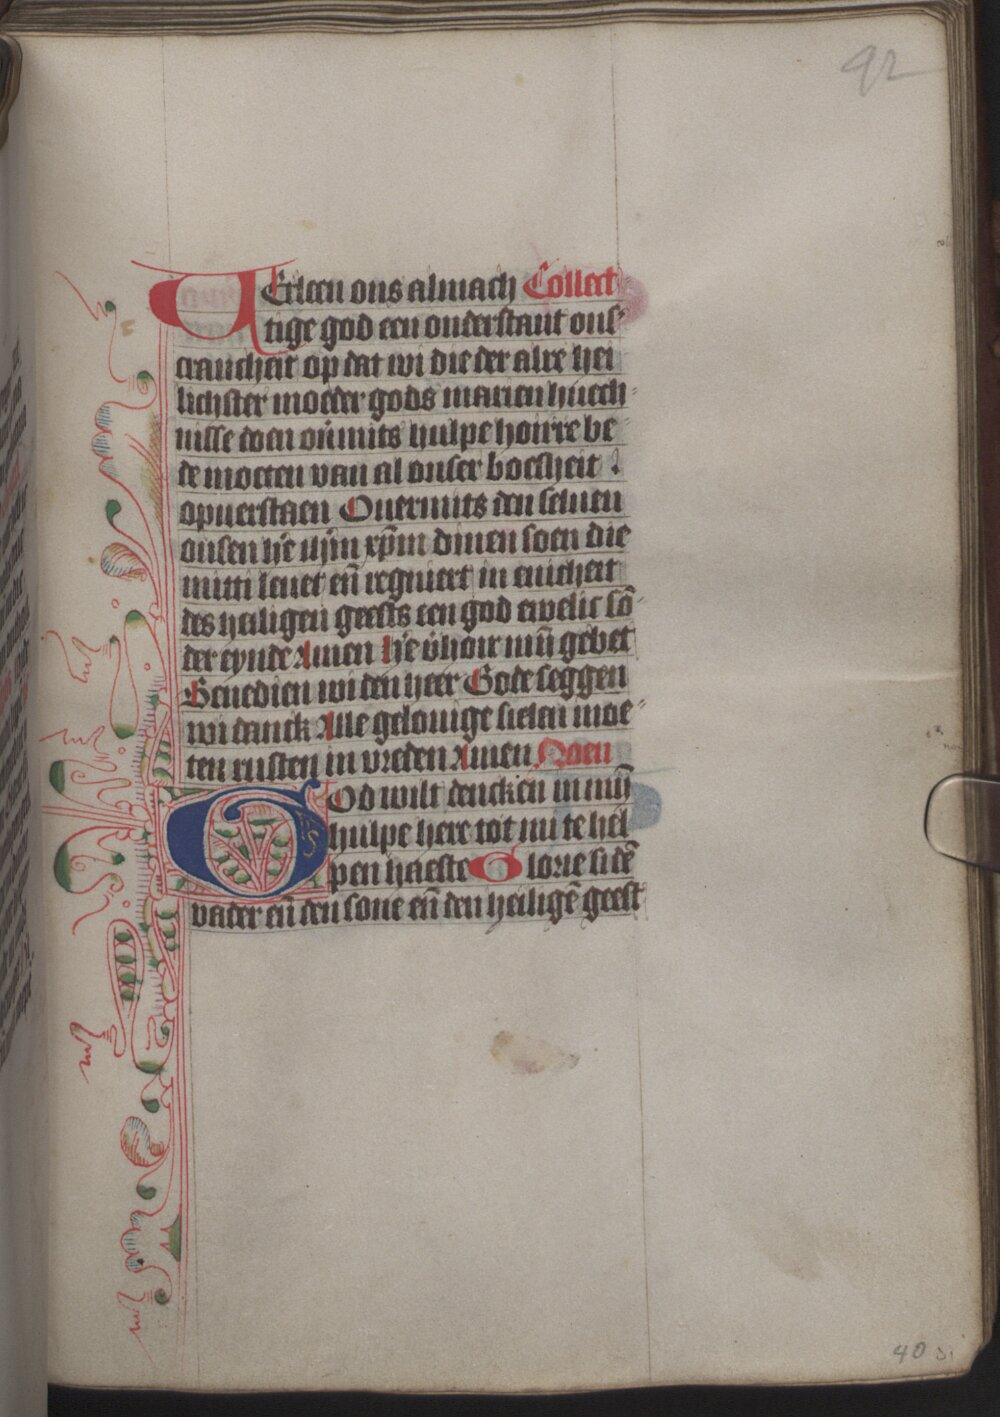 92
VErleen ons almach Collect
tige god een onderstant ons
crancheit op dat wi die der alre hei
lichster moeder gods marien huech
nisse doen ou̅mits hulpe hoirre be
de moeten van al onser boesheit
opuerstaen Ouermits den seluen
onsen he̅ ihm̅ xp̅m dinen soen die
mitti leuet en̅ regniert in ewicheit
des heiligen geests een god ewelic so̅
der eynde Amen He v̅hoir mij̅ gebet
Benedien wi den heer Gode seggen
wi danck Alle gelouige sielen moe
ten rusten in vreden Amen Noen
GOd wilt dencken in mij̅
hulpe here tot mi te hel
pen haeste Glorie si de̅
vader en̅ den sone en̅ den heilige̅ geest
40